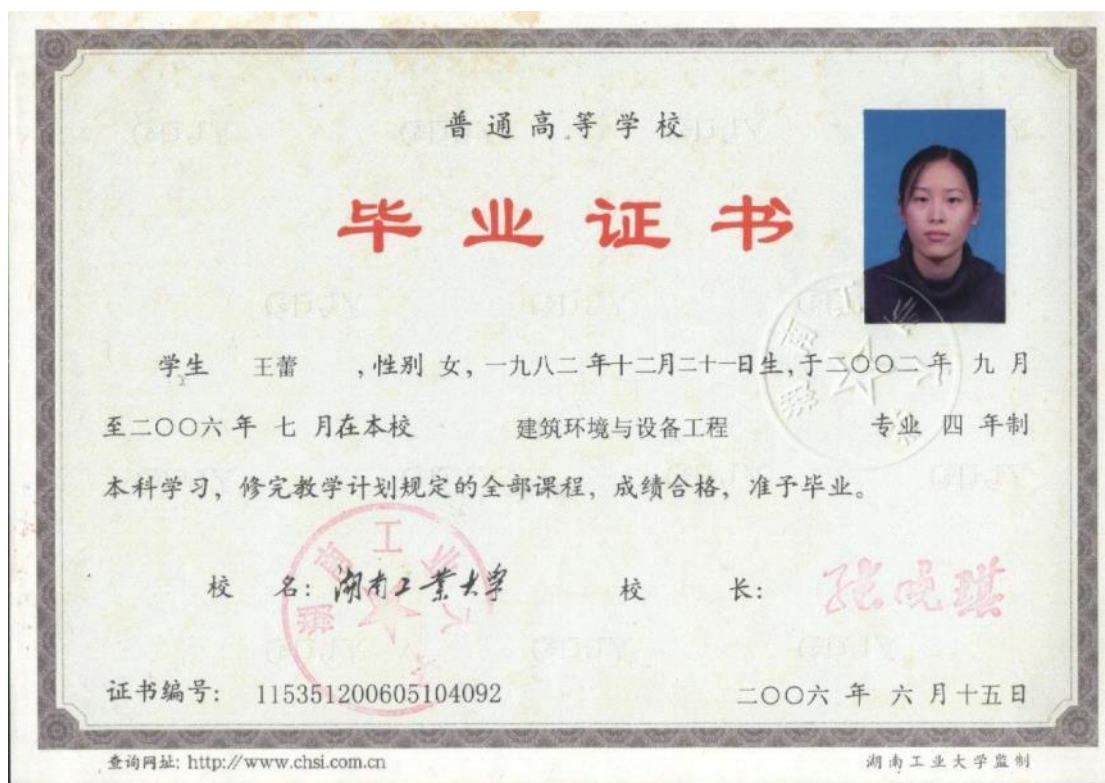 普通高等学校
毕业证书
学生 王蕾 ，性别 女，一九八二年十二月二十一日生，于二〇〇二年 九 月
至二〇〇六年 七 月在本校 建筑环境与设备工程 专业 四 年制
本科学习，修完教学计划规定的全部课程，成绩合格，准予毕业。
校 名：湖南工業大学 校 长：张晓琪
湖南工业大学
湖南工业大学
证书编号：115351200605104092 二〇〇六 年 六 月十五日
查询网址：http://www.chsi.com.cn 湖南工业大学监制